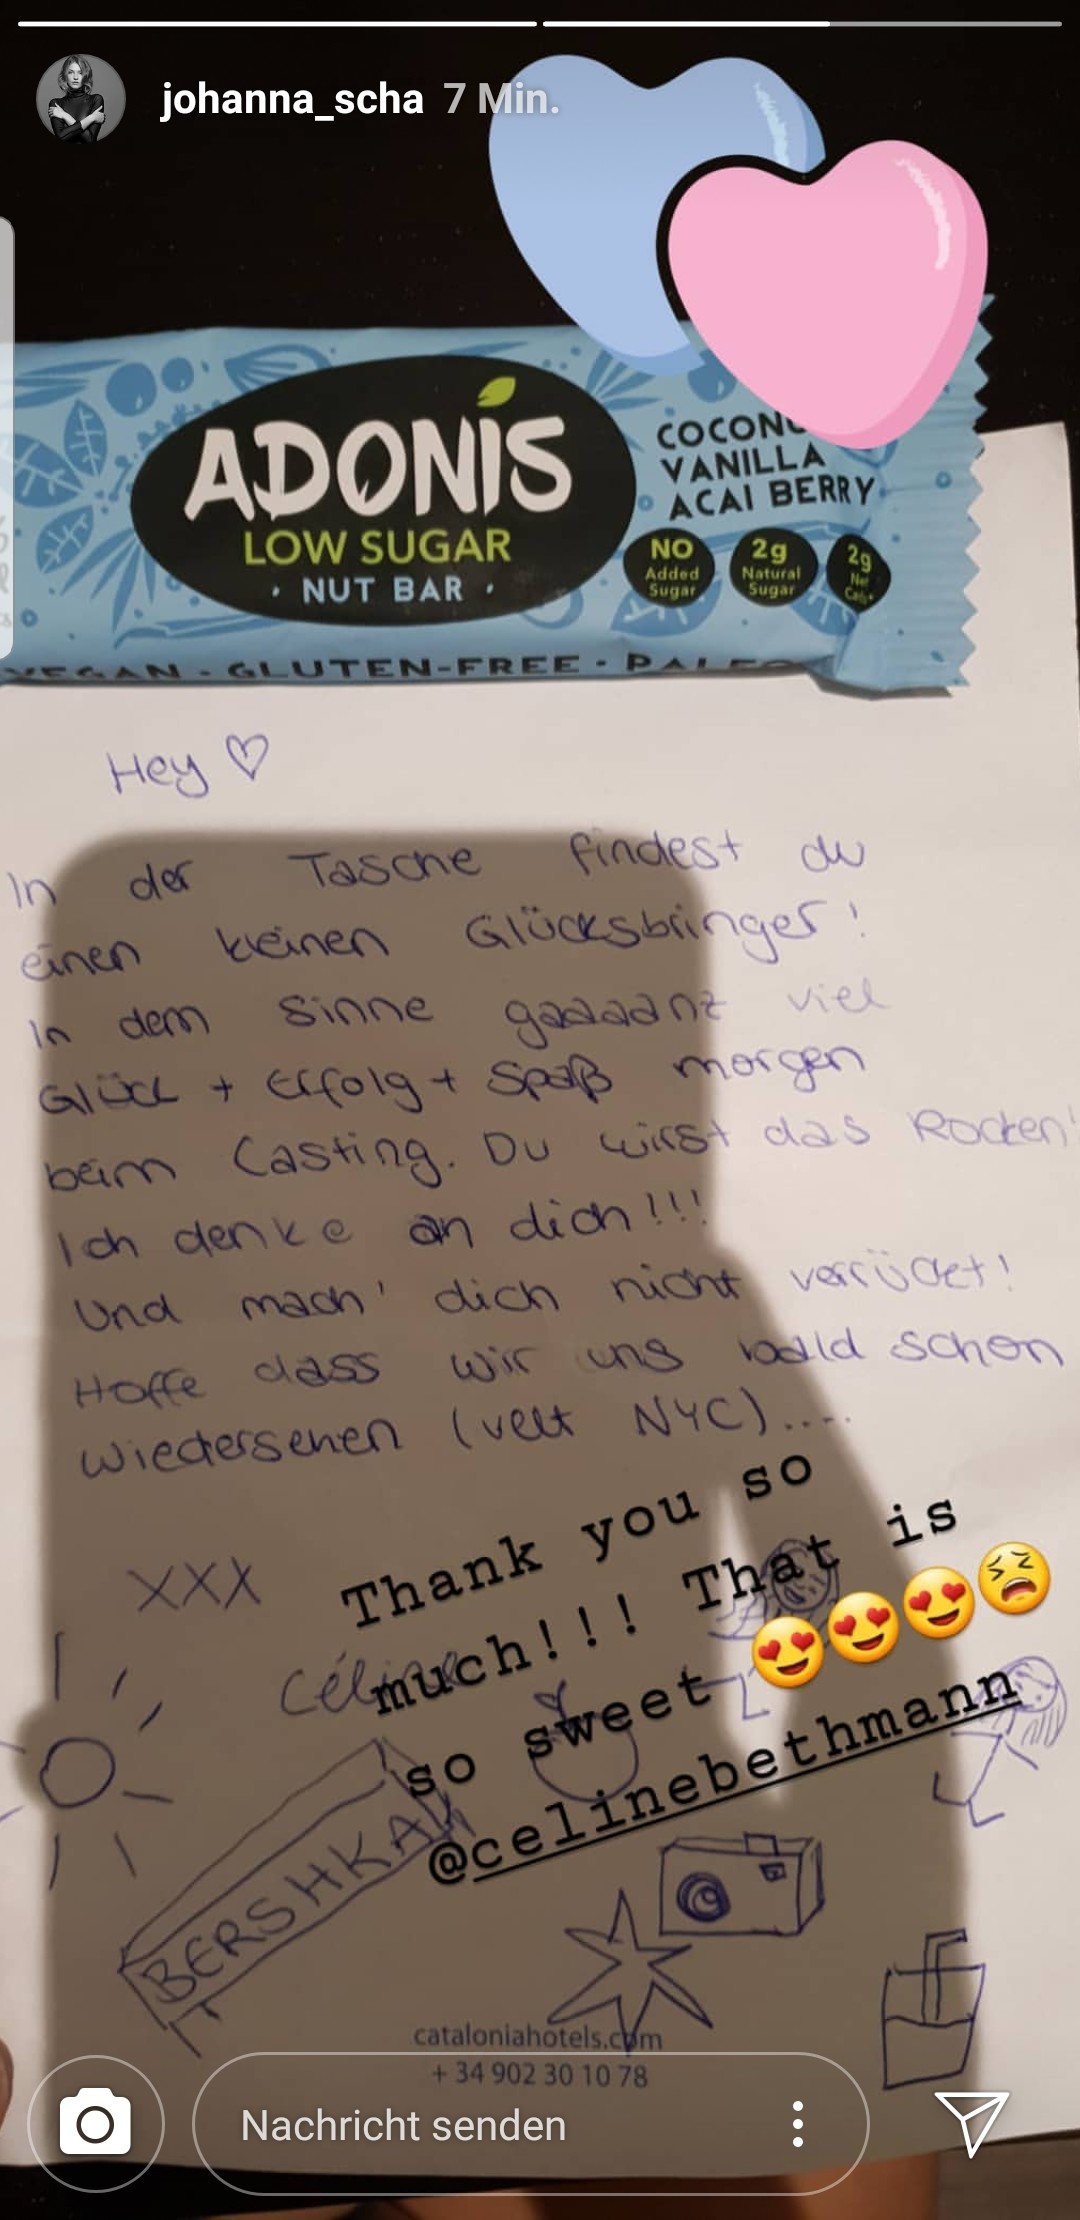 johanna_scha 7 Min.
ADONIS
LOW SUGAR
· NUT BAR ·
VANILLA
ACAI BERRY
NO
Added
Sugar
2g
Natural
Sugar
2g
Net
Carbs
VEGAN · GLUTEN-FREE · PALEO
Hey ♡
In der Tasche findest du
einen kleinen Glücksbringer!
In dem Sinne gaaaanz viel
Glück + Erfolg + Spaß morgen
beim Casting. Du wirst das Rocken!
Ich denke an dich!!!
Und mach' dich nicht verrückt!
Hoffe dass wir uns bald schon
wiedersehen (vllt NYC)....
XXX
Céline
Thank you so
much!!! That is
so sweet 😍😍😍😫
@celinebethmann
BERSHKA
cataloniahotels.com
+ 34 902 30 10 78
Nachricht senden